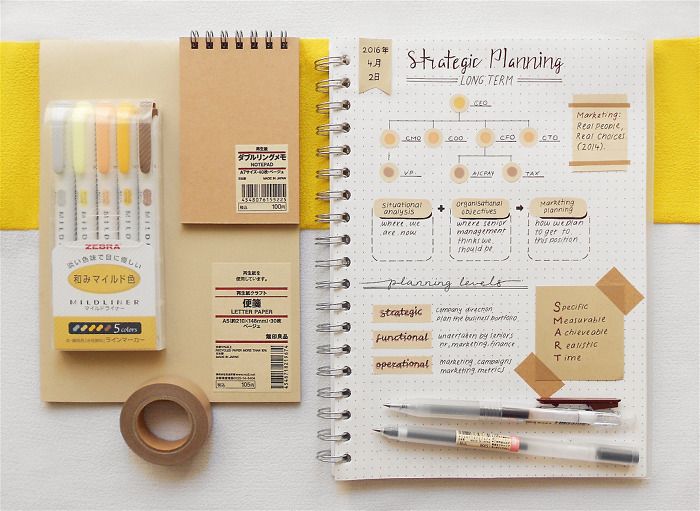 ZEBRA
濃い色味で目に優しい
和みマイルド色
MILDLINER
マイルドライナー
5 colors
ラインマーカー
再生紙
ダブルリングメモ
NOTEPAD
A7サイズ・40枚・ベージュ
MADE IN JAPAN
4548076155225
税込 100円
再生紙を
使用しています。
再生紙クラフト
便箋
LETTER PAPER
A5(約210×148mm)・30枚
ベージュ
無印良品
RECYCLED PAPER MORE THAN 10%
税込 105円
2016年
4月
2日
Strategic Planning
LONG TERM
CEO
CMO
COO
CFO
CTO
V.P.
AICPAY
TAX
Marketing:
Real People,
Real Choices
(2014).
Situational
analysis
where we
are now
+
Organisational
objectives
where senior
management
thinks we
should be
Marketing
planning
how we plan
to get to
this position
planning levels
strategic
company direction
plan the business portfolio
functional
undertaken by seniors
hr, marketing, finance
operational
marketing campaigns
marketing metrics
Specific
Measurable
Achieveable
Realistic
Time